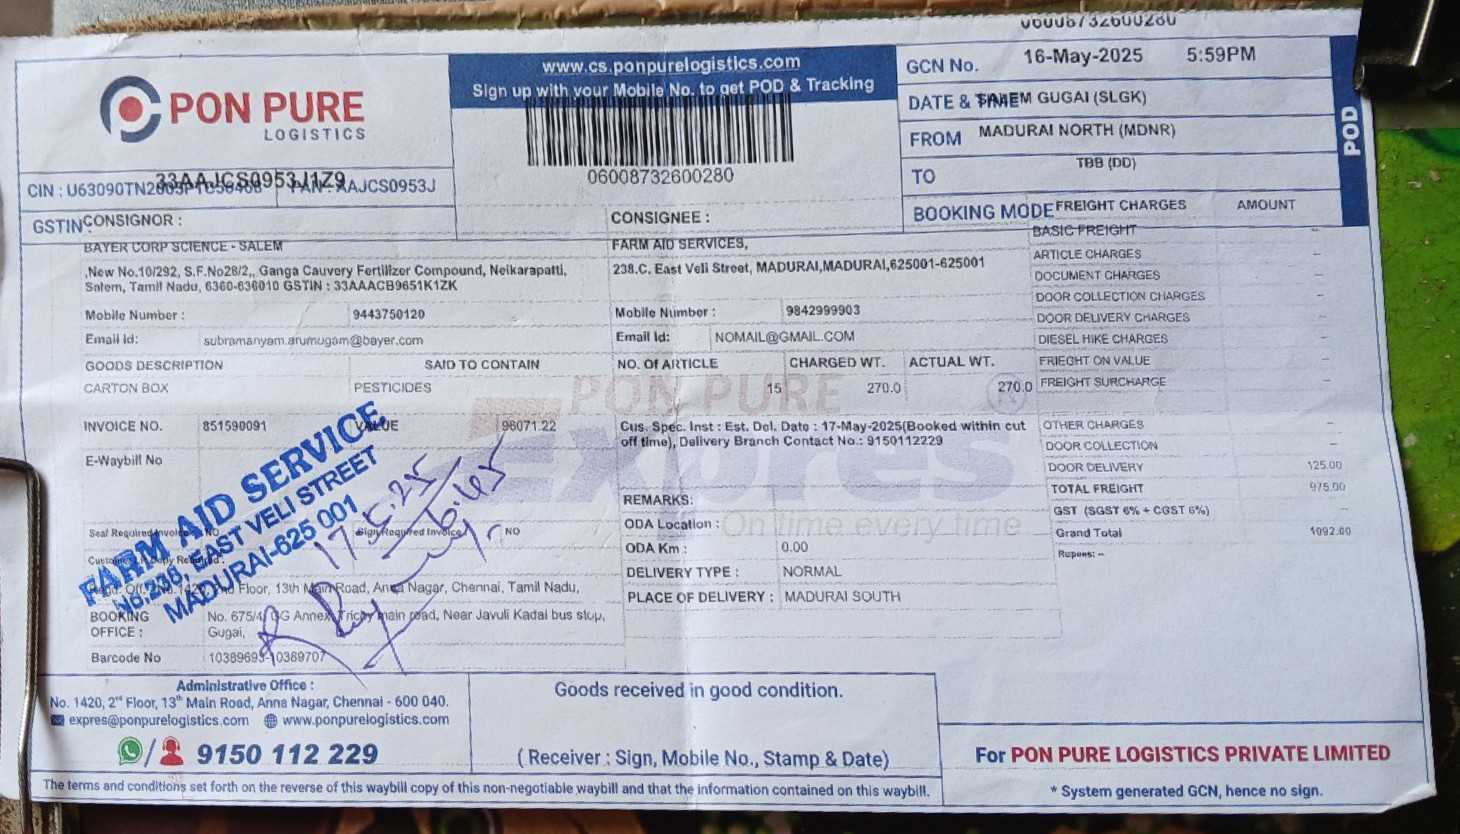 06008732600280
PON PURE
LOGISTICS
www.cs.ponpurelogistics.com
Sign up with your Mobile No. to get POD & Tracking
06008732600280
GCN No. 16-May-2025 5:59PM
DATE & TIME SALEM GUGAI (SLGK)
FROM MADURAI NORTH (MDNR)
TO TBB (DD)
BOOKING MODE
POD
CIN : U63090TN2005PTC PAN : AAJCS0953J
33AAJCS0953J1Z9
GSTIN
CONSIGNOR :
BAYER CORP SCIENCE - SALEM
,New No.10/292, S.F.No28/2,, Ganga Cauvery Fertilizer Compound, Neikarapatti,
Salem, Tamil Nadu, 6360-636010 GSTIN : 33AAACB9651K1ZK
Mobile Number : 9443750120
Email Id: subramanyam.arumugam@bayer.com
CONSIGNEE :
FARM AID SERVICES,
238.C. East Veli Street, MADURAI,MADURAI,625001-625001
Mobile Number : 9842999903
Email Id: NOMAIL@GMAIL.COM
GOODS DESCRIPTION SAID TO CONTAIN NO. Of ARTICLE CHARGED WT. ACTUAL WT.
CARTON BOX PESTICIDES 15 270.0 270.0
INVOICE NO. 851590091 VALUE 96071.22
E-Waybill No
Cus. Spec. Inst : Est. Del. Date : 17-May-2025(Booked within cut
off time), Delivery Branch Contact No.: 9150112229
PON PURE
Expres
On time every time
REMARKS:
ODA Location :
ODA Km : 0.00
DELIVERY TYPE : NORMAL
PLACE OF DELIVERY : MADURAI SOUTH
FREIGHT CHARGES AMOUNT
BASIC FREIGHT –
ARTICLE CHARGES –
DOCUMENT CHARGES –
DOOR COLLECTION CHARGES –
DOOR DELIVERY CHARGES –
DIESEL HIKE CHARGES –
FRIEGHT ON VALUE –
FREIGHT SURCHARGE –
OTHER CHARGES –
DOOR COLLECTION –
DOOR DELIVERY 125.00
TOTAL FREIGHT 975.00
GST (SGST 6% + CGST 6%)
Grand Total 1092.00
Rupees: –
Seal Required Invoice NO Sign Required Invoice NO
FARM AID SERVICE
No,238, EAST VELI STREET
MADURAI-625 001
17.5.25
Floor, 13th Main Road, Anna Nagar, Chennai, Tamil Nadu,
BOOKING OFFICE : No. 675/4, GG Annex, Trichy main road, Near Javuli Kadai bus stop,
Gugai,
Barcode No 10389693-10389707
Administrative Office :
No. 1420, 2nd Floor, 13th Main Road, Anna Nagar, Chennai - 600 040.
expres@ponpurelogistics.com www.ponpurelogistics.com
9150 112 229
Goods received in good condition.
( Receiver : Sign, Mobile No., Stamp & Date)
For PON PURE LOGISTICS PRIVATE LIMITED
* System generated GCN, hence no sign.
The terms and conditions set forth on the reverse of this waybill copy of this non-negotiable waybill and that the information contained on this waybill.